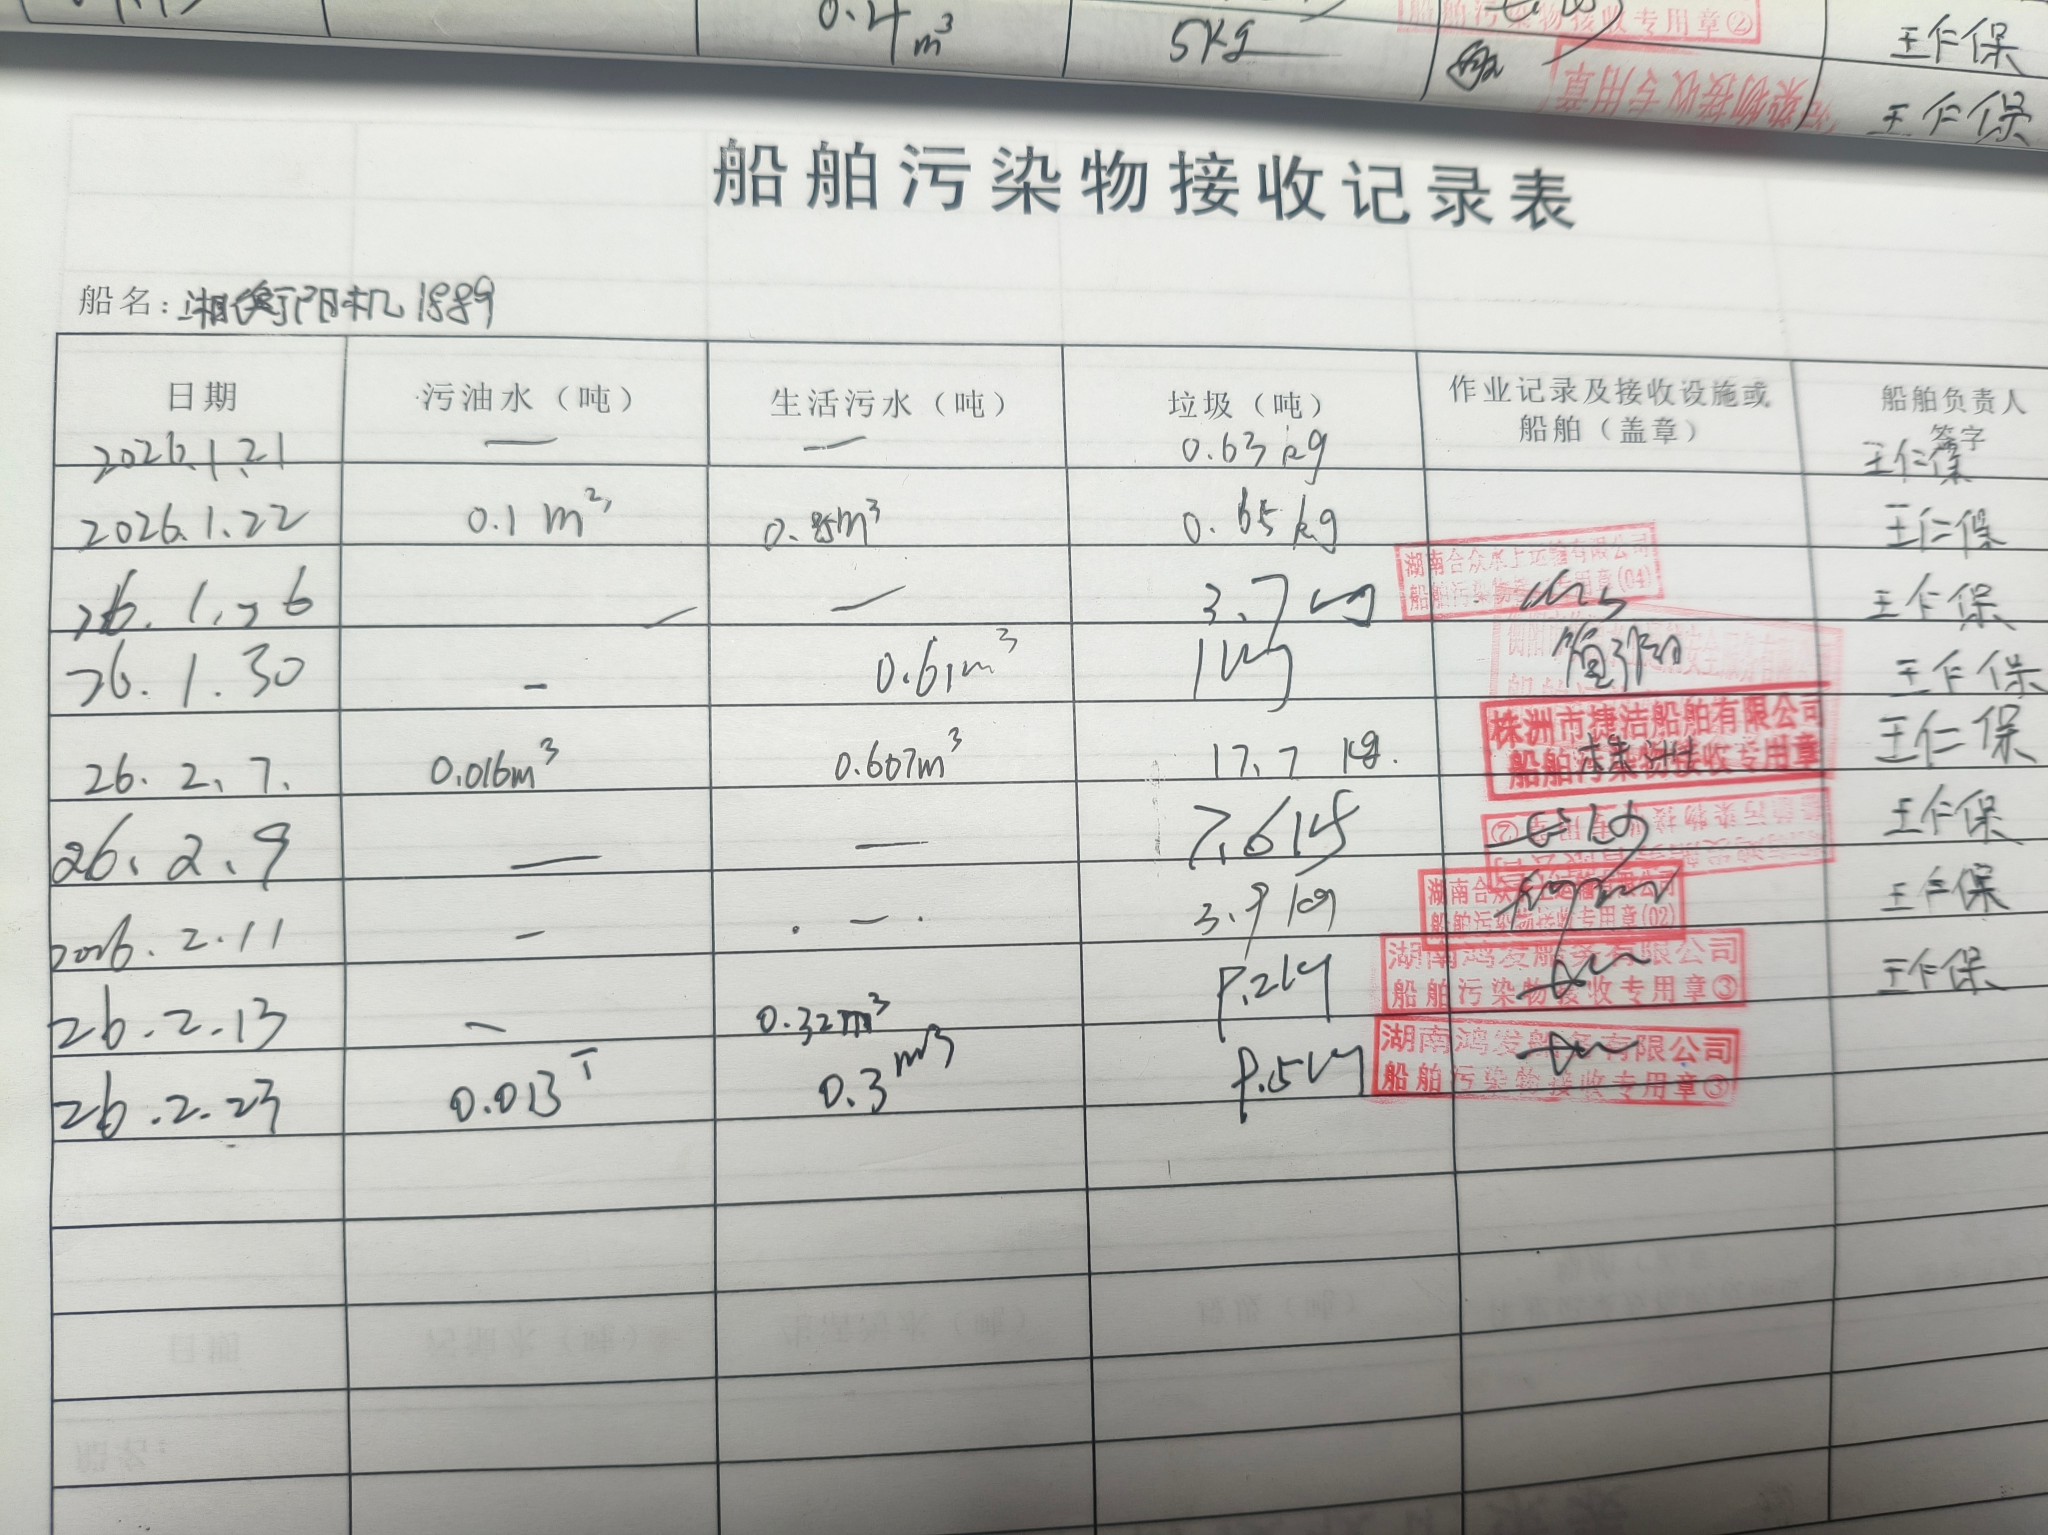 0.4 m³ 5Kg 船舶污染物接收专用章② 王仁保
污染物接收专用章 王仁保
船舶污染物接收记录表
船名: 湘衡阳机1889
日期 污油水（吨） 生活污水（吨） 垃圾（吨） 作业记录及接收设施或船舶（盖章） 船舶负责人签字
2026.1.21 — — 0.63 kg 王仁保
2026.1.22 0.1 m³ 0.85m³ 0.65 kg 王仁保
26.1.26 — — 3.7 kg 湖南合众水上运输有限公司 船舶污染物接收专用章(04) 王仁保
26.1.30 - 0.61m³ 1kg 王仁保
26.2.7. 0.016m³ 0.607m³ 17.7 kg. 株洲市捷洁船舶有限公司 船舶污染物接收专用章 株洲 王仁保
26.2.9 — — 7.61kg 船舶污染物接收专用章② 王仁保
2026.2.11 - - 3.9 kg 湖南合众 船舶污染物接收专用章(02) 王仁保
26.2.13 - 0.32m³ 8.2kg 湖南鸿发船务有限公司 船舶污染物接收专用章③ 王仁保
26.2.23 0.013T 0.3m³ 8.5kg 湖南鸿发船务有限公司 船舶污染物接收专用章③